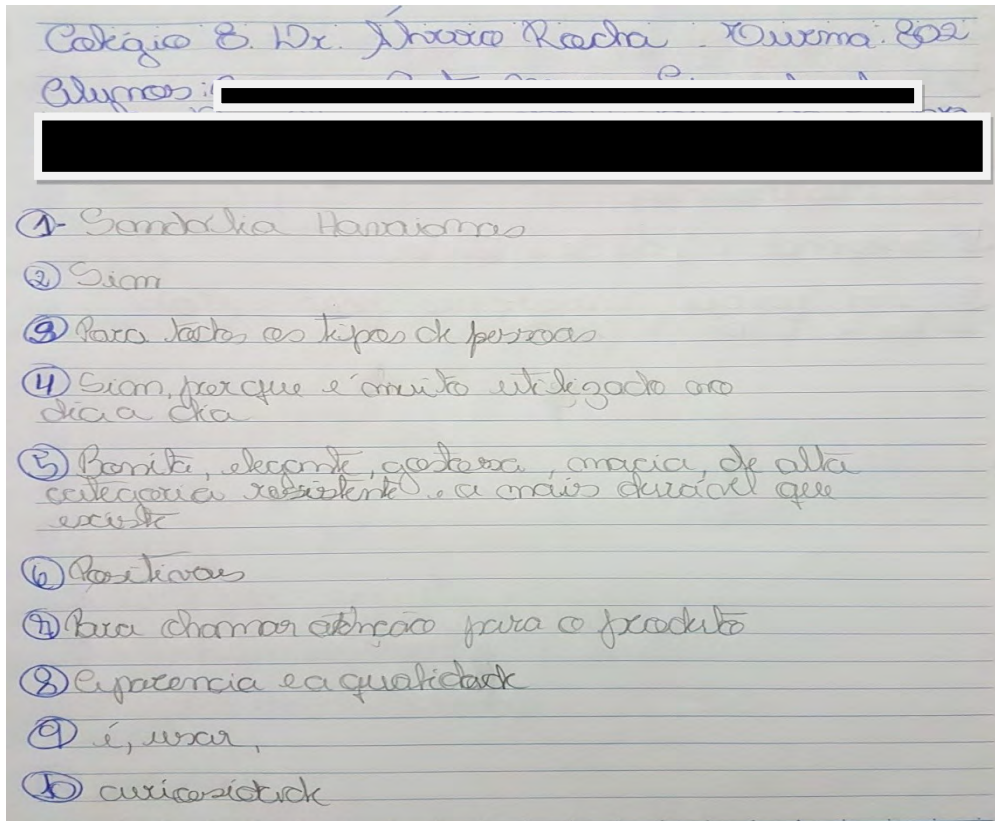 Colégio E. Dr. Álvaro Rocha. Turma: 802
Alunos:
1- Sandalia Havaianas
2 Sim
3 Para todos os tipos de pessoas
4 Sim, porque é muito utilizado no
dia a dia
5 Bonita, elegante, gostosa, macia, de alta
categoria resistente, e a mais durável que
existe
6 Positivas
7 Para chamar atenção para o produto
8 Aparencia e a qualidade
9 é, usar,
10 curiosidade